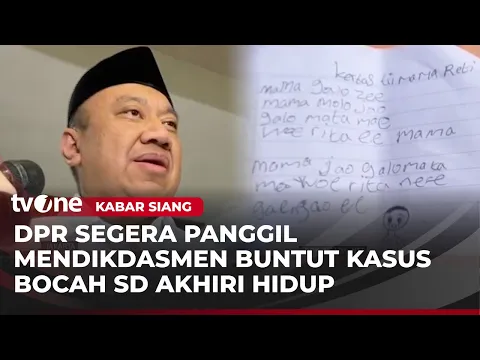 kertas tii mama Reti
mama galo zee
mama molo jao
galo mata mae
woe rita ee mama
mama jao galo mata
mae woe rita ne'e
gae ngao ee
tvOne KABAR SIANG
DPR SEGERA PANGGIL
MENDIKDASMEN BUNTUT KASUS
BOCAH SD AKHIRI HIDUP